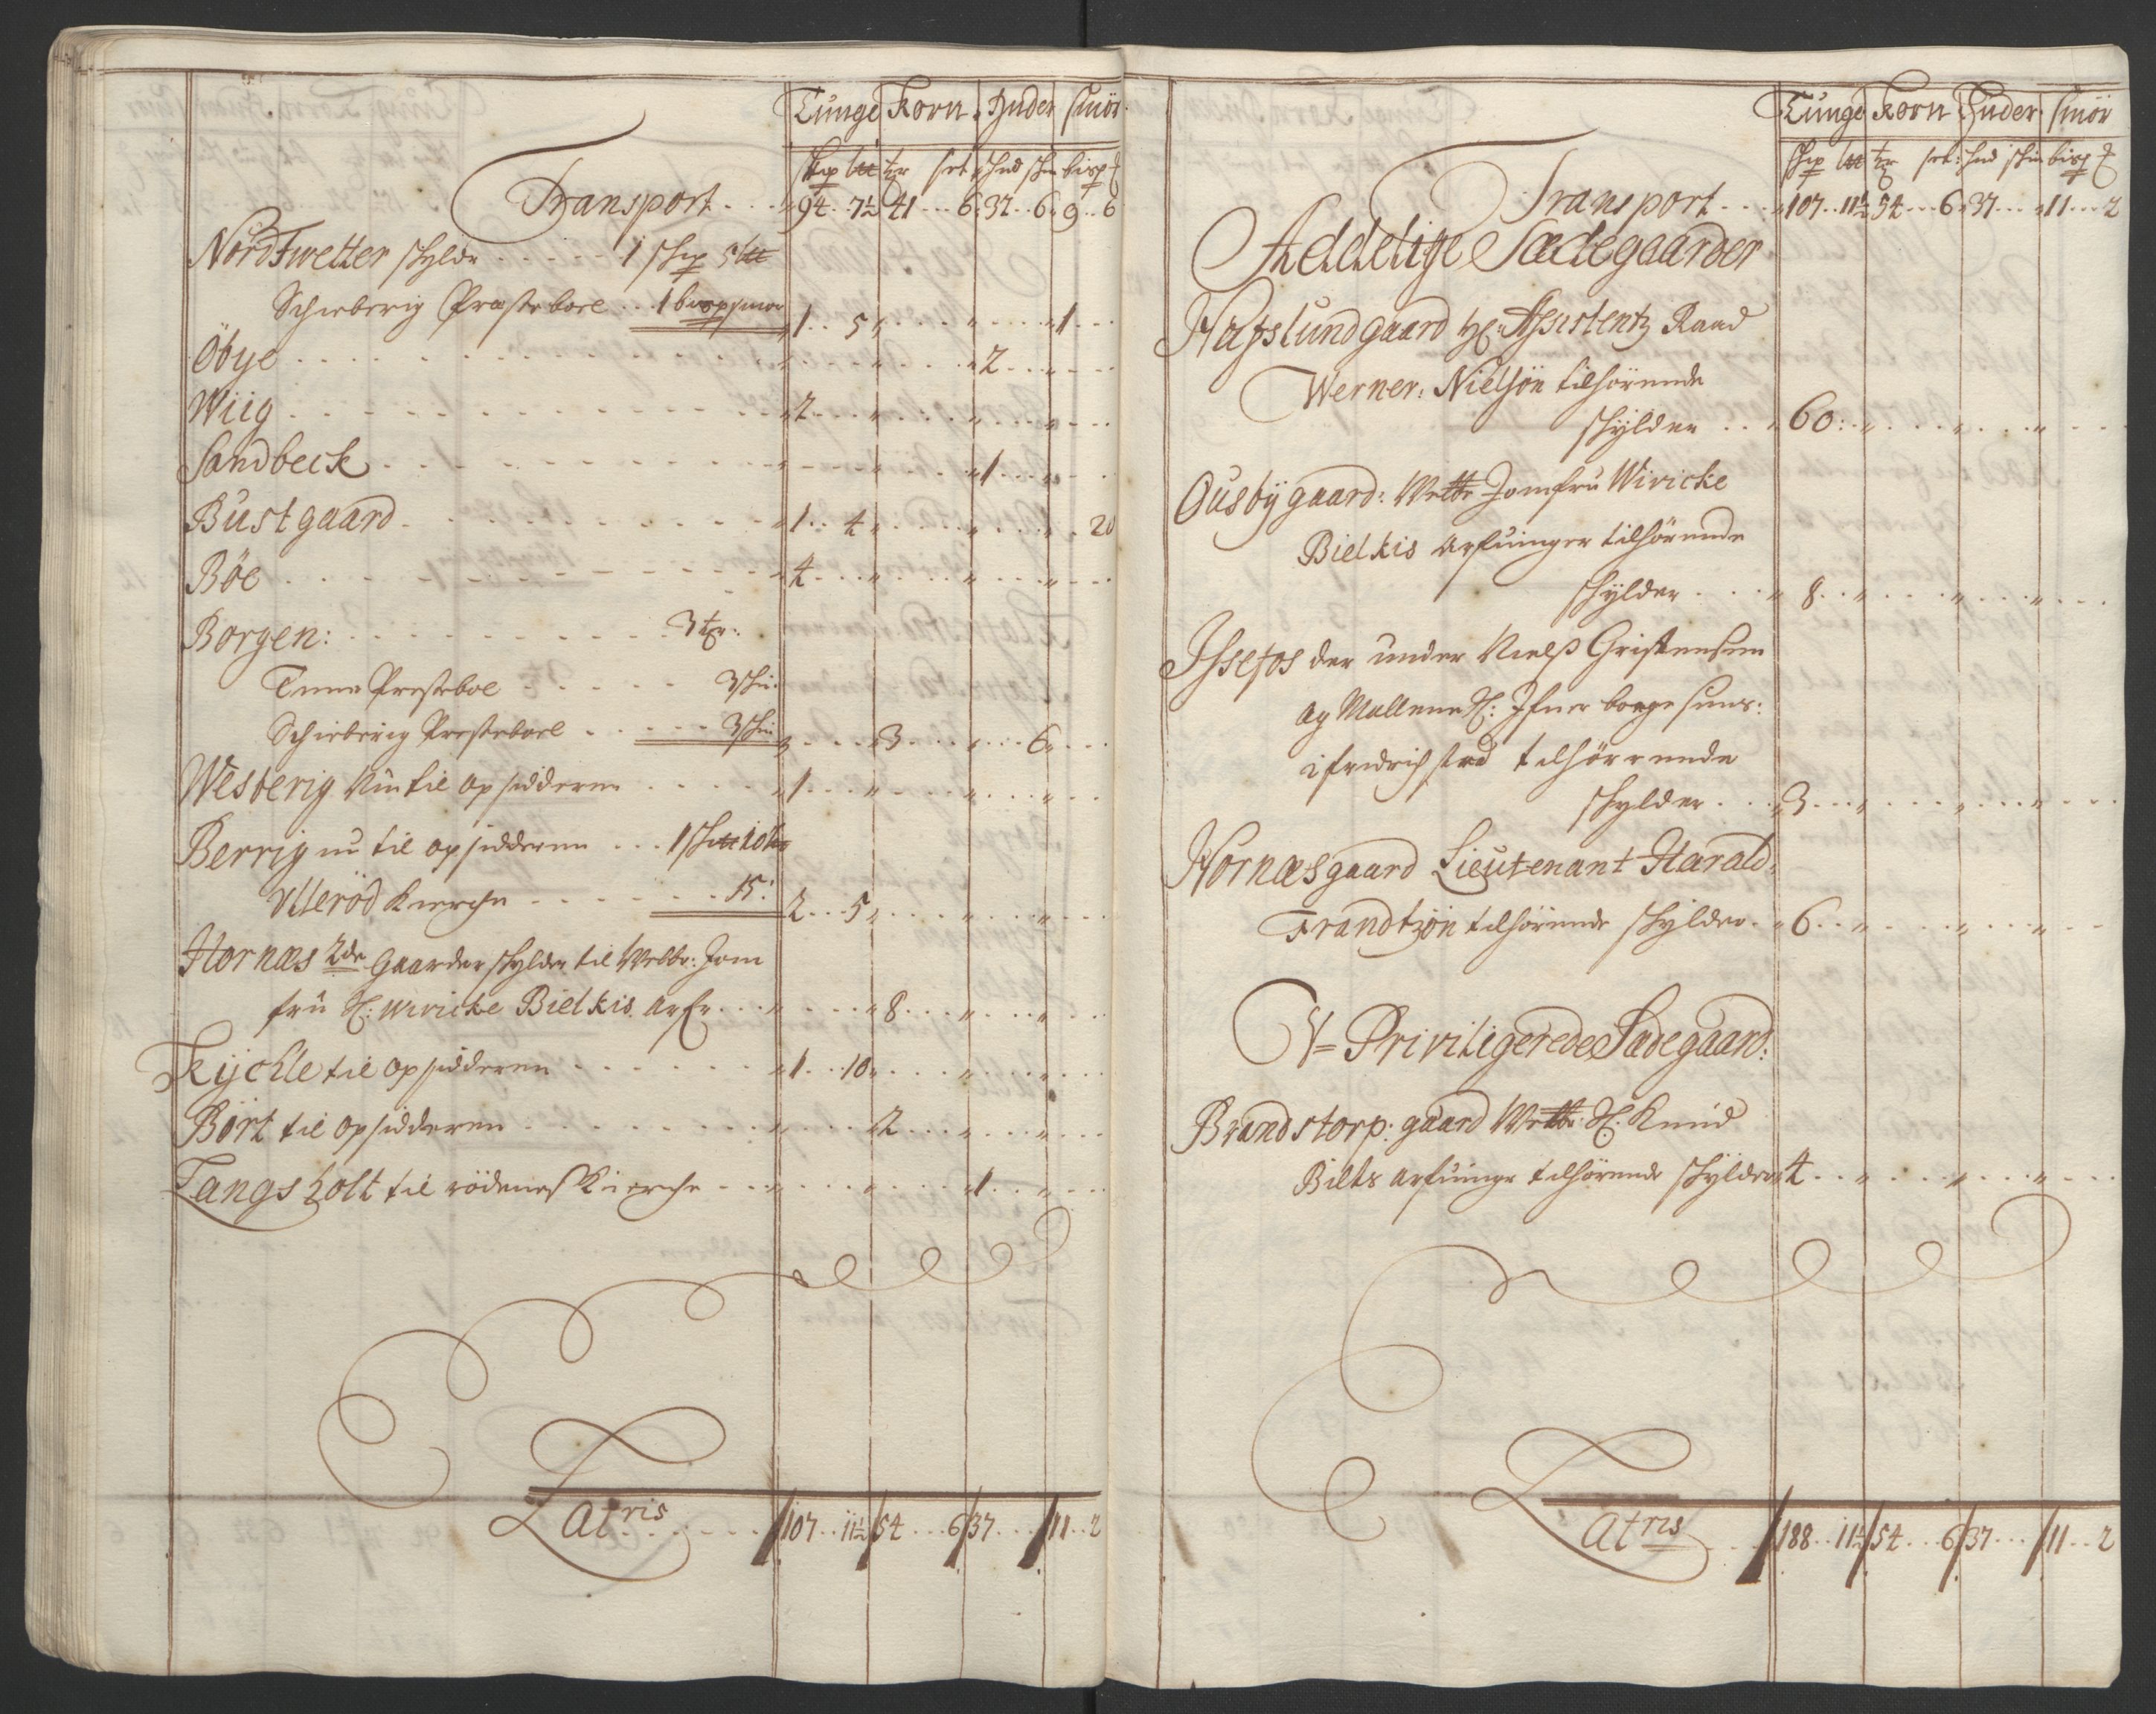 Tunge Korn Huder smör
skp lit tr set hud skin bisp
Transport 94 7½ 41 6 32 6 9 6
Nord Twetter skylder 1 skp 5 lit
Schieberig Præstebole 1 bisp smör 1 5 1
Öbye 2
Wiig 2
Sandbeck 1
Bustgaard 1 4 20
Böe 4
Borgen: 3 tr:
Tune Presteboe 3 skin
Schieberig Presteboel 3 skin 3 6
Westerig Nu til opsidderen 1
Berrig nu til opsidderen
Ulleröd Kierche 15: 2 5
Hornæs 2de Gaarder skylder til Welb: Jom
fru Wiricke Bielkis 8
Kychle til opsidderen 1 10
Bört til opsidderen 2
Langsholt til rödenes Kierche 1
Latris 107 11½ 54 6 37 11 2
Tunge Korn Huder smör
skp lit tr set: hud skin bisp
Transport 107 11½ 54 6 37 11 2
Addelige Sædegaarder
Hafslund gaard Hr: Assistentz Raad
Werner: Nielsön tilhörende
skylder 60
Ousby gaard: Jomfru Wiricke
Bielkis arfuinger tilhörende
skylder 8
Issefos der under Nielss Christensen
og
i fredrichstad tilhörrende
skylder 3
Hornæs gaard Lieutenant Harald
Frandtzön tilhörende skylder 6
V= Priviligerede Sædegaard:
Brandstorp: gaard Knud
Bilds arfuinge tilhörende skylder 4
Latris 188 11½ 54 6 37 11 2